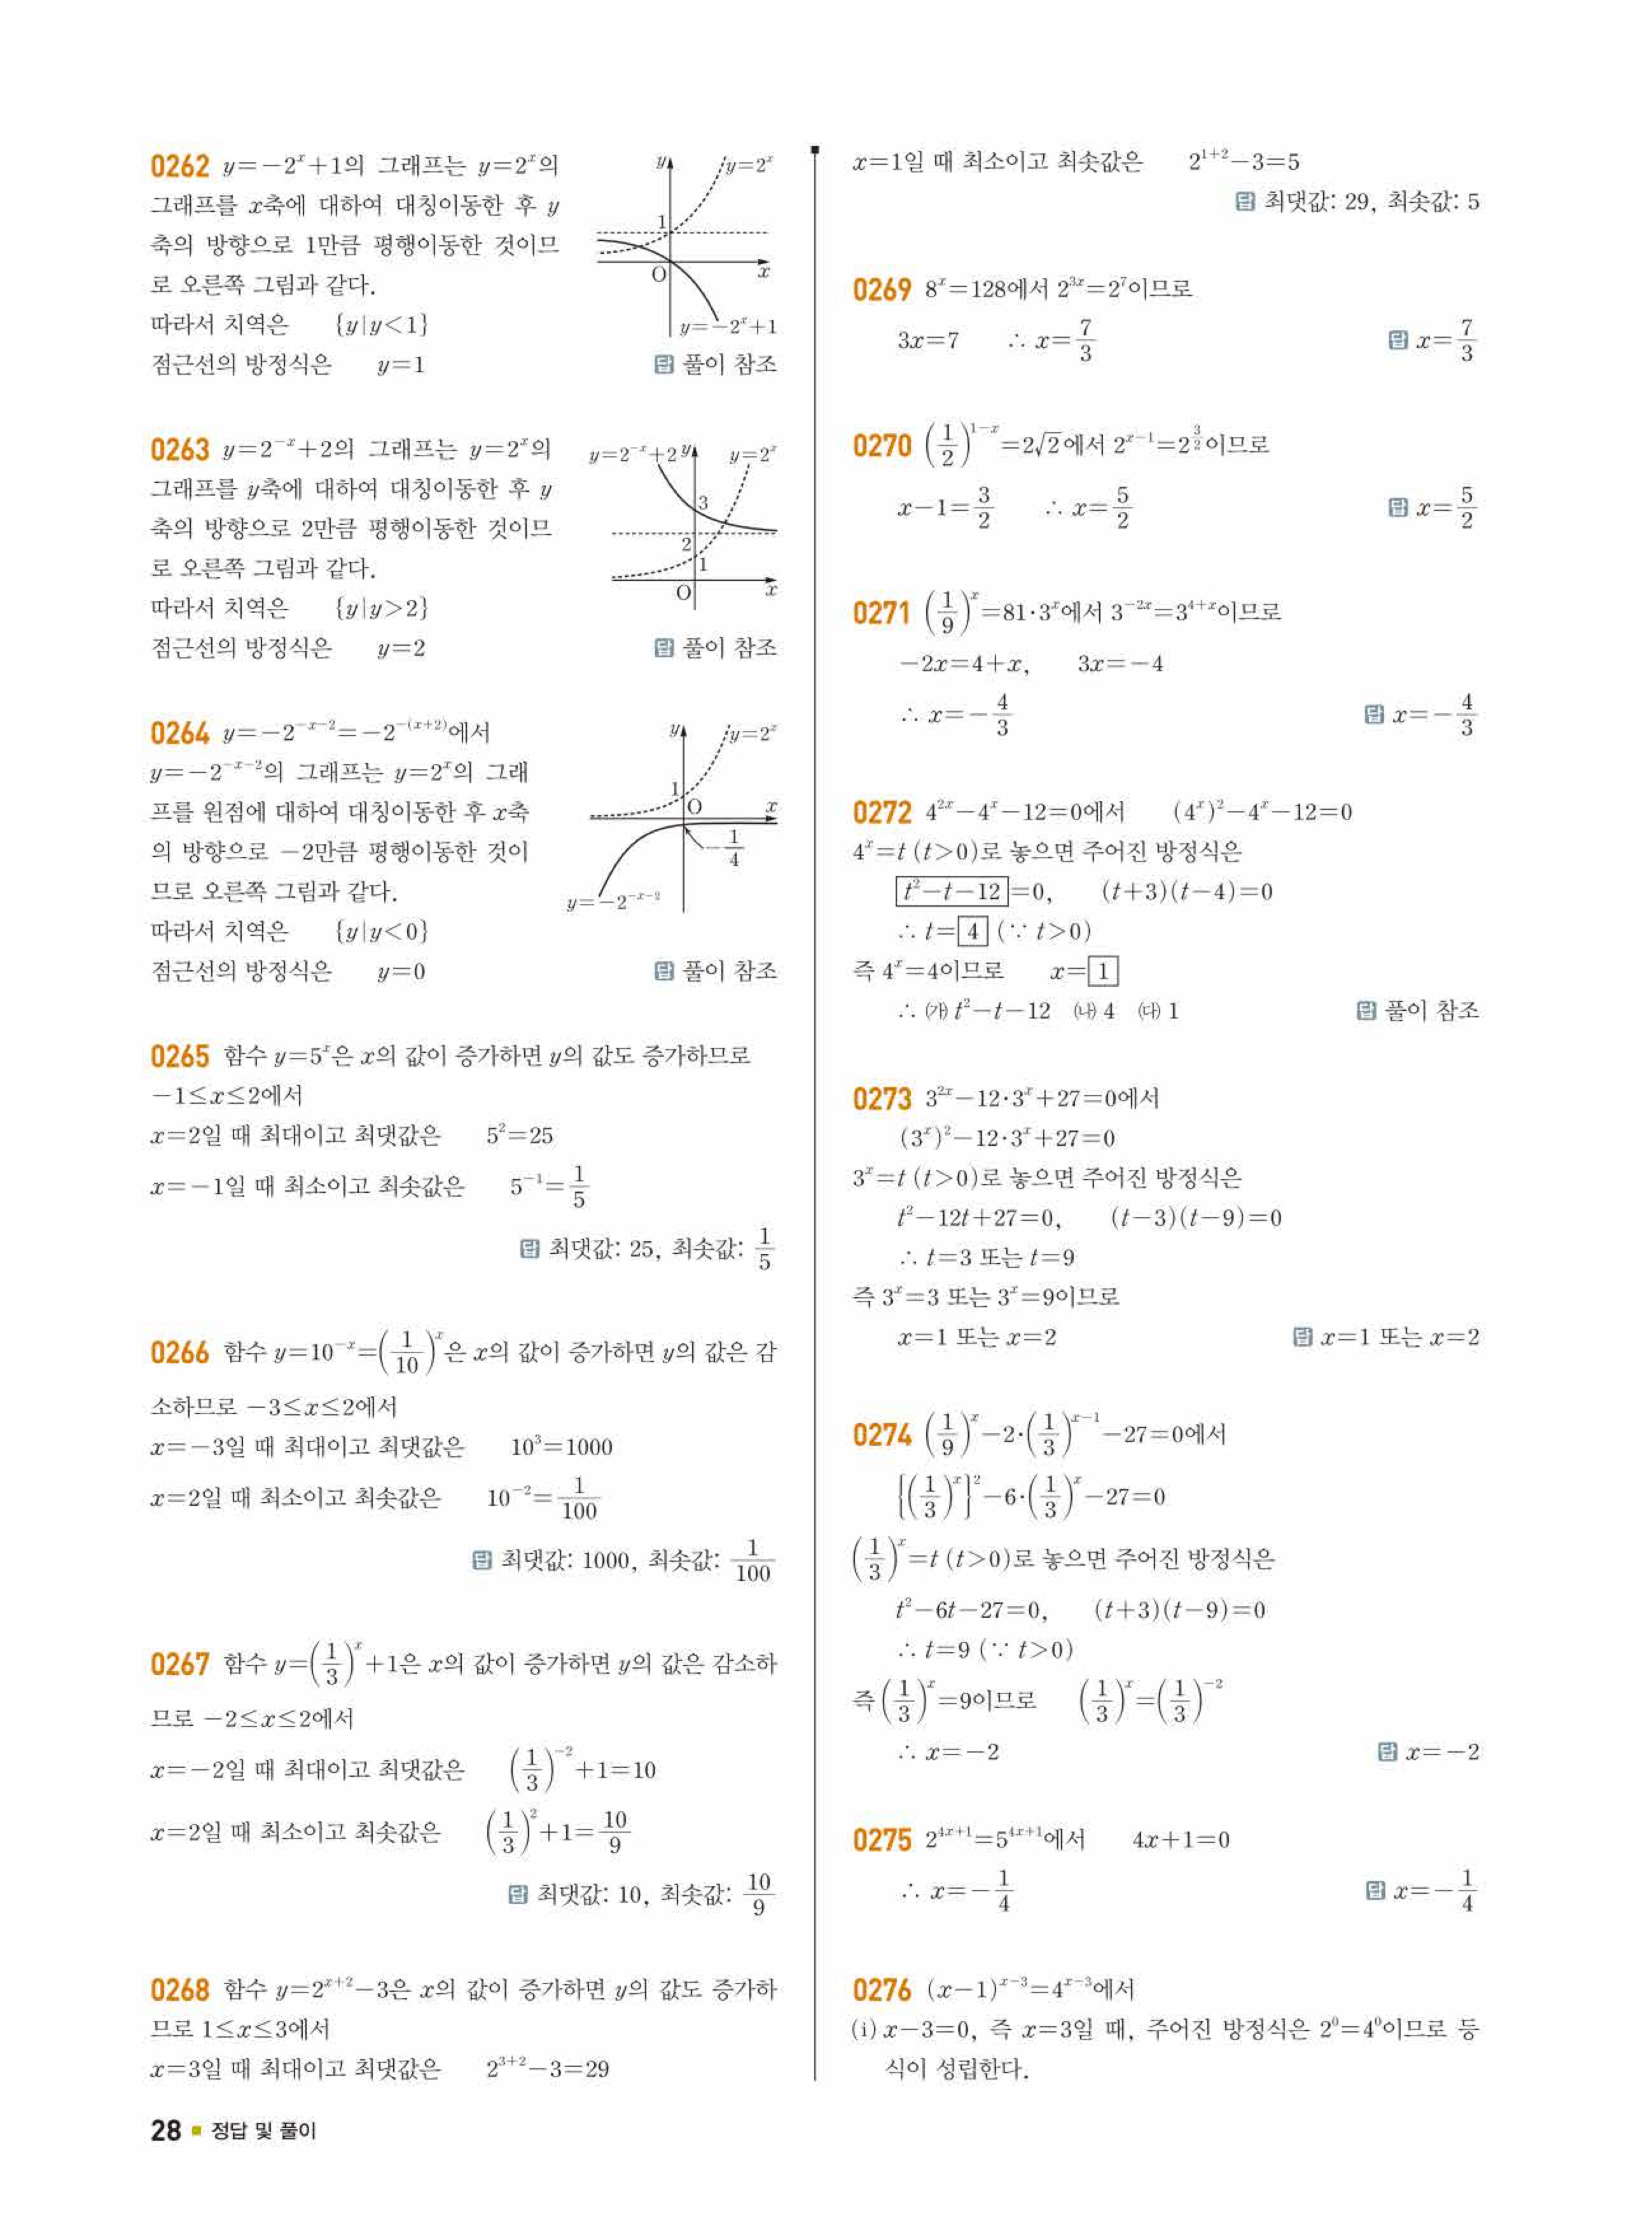 0262 y=-2^x+1의 그래프는 y=2^x의
그래프를 x축에 대하여 대칭이동한 후 y
축의 방향으로 1만큼 평행이동한 것이므
로 오른쪽 그림과 같다.
따라서 치역은 {y|y<1}
점근선의 방정식은 y=1
y
y=2^x
1
O
x
y=-2^x+1
답 풀이 참조
0263 y=2^{-x}+2의 그래프는 y=2^x의
그래프를 y축에 대하여 대칭이동한 후 y
축의 방향으로 2만큼 평행이동한 것이므
로 오른쪽 그림과 같다.
따라서 치역은 {y|y>2}
점근선의 방정식은 y=2
y=2^{-x}+2
y
y=2^x
3
2
1
O
x
답 풀이 참조
0264 y=-2^{-x-2}=-2^{-(x+2)}에서
y=-2^{-x-2}의 그래프는 y=2^x의 그래
프를 원점에 대하여 대칭이동한 후 x축
의 방향으로 -2만큼 평행이동한 것이
므로 오른쪽 그림과 같다.
따라서 치역은 {y|y<0}
점근선의 방정식은 y=0
y
y=2^x
1
O
x
-1/4
y=-2^{-x-2}
답 풀이 참조
0265 함수 y=5^x은 x의 값이 증가하면 y의 값도 증가하므로
-1≤x≤2에서
x=2일 때 최대이고 최댓값은 5^2=25
x=-1일 때 최소이고 최솟값은 5^{-1}=1/5
답 최댓값: 25, 최솟값: 1/5
0266 함수 y=10^{-x}=(1/10)^x은 x의 값이 증가하면 y의 값은 감
소하므로 -3≤x≤2에서
x=-3일 때 최대이고 최댓값은 10^3=1000
x=2일 때 최소이고 최솟값은 10^{-2}=1/100
답 최댓값: 1000, 최솟값: 1/100
0267 함수 y=(1/3)^x+1은 x의 값이 증가하면 y의 값은 감소하
므로 -2≤x≤2에서
x=-2일 때 최대이고 최댓값은 (1/3)^{-2}+1=10
x=2일 때 최소이고 최솟값은 (1/3)^2+1=10/9
답 최댓값: 10, 최솟값: 10/9
0268 함수 y=2^{x+2}-3은 x의 값이 증가하면 y의 값도 증가하
므로 1≤x≤3에서
x=3일 때 최대이고 최댓값은 2^{3+2}-3=29
x=1일 때 최소이고 최솟값은 2^{1+2}-3=5
답 최댓값: 29, 최솟값: 5
0269 8^x=128에서 2^{3x}=2^7이므로
3x=7 ∴ x=7/3 답 x=7/3
0270 (1/2)^{1-x}=2√2에서 2^{x-1}=2^{3/2}이므로
x-1=3/2 ∴ x=5/2 답 x=5/2
0271 (1/9)^x=81·3^x에서 3^{-2x}=3^{4+x}이므로
-2x=4+x, 3x=-4
∴ x=-4/3 답 x=-4/3
0272 4^{2x}-4^x-12=0에서 (4^x)^2-4^x-12=0
4^x=t (t>0)로 놓으면 주어진 방정식은
t^2-t-12=0, (t+3)(t-4)=0
∴ t=4 (∵ t>0)
즉 4^x=4이므로 x=1
∴ ㈎ t^2-t-12 ㈏ 4 ㈐ 1 답 풀이 참조
0273 3^{2x}-12·3^x+27=0에서
(3^x)^2-12·3^x+27=0
3^x=t (t>0)로 놓으면 주어진 방정식은
t^2-12t+27=0, (t-3)(t-9)=0
∴ t=3 또는 t=9
즉 3^x=3 또는 3^x=9이므로
x=1 또는 x=2 답 x=1 또는 x=2
0274 (1/9)^x-2·(1/3)^{x-1}-27=0에서
{(1/3)^x}^2-6·(1/3)^x-27=0
(1/3)^x=t (t>0)로 놓으면 주어진 방정식은
t^2-6t-27=0, (t+3)(t-9)=0
∴ t=9 (∵ t>0)
즉 (1/3)^x=9이므로 (1/3)^x=(1/3)^{-2}
∴ x=-2 답 x=-2
0275 2^{4x+1}=5^{4x+1}에서 4x+1=0
∴ x=-1/4 답 x=-1/4
0276 (x-1)^{x-3}=4^{x-3}에서
(i) x-3=0, 즉 x=3일 때, 주어진 방정식은 2^0=4^0이므로 등
식이 성립한다.
28 정답 및 풀이